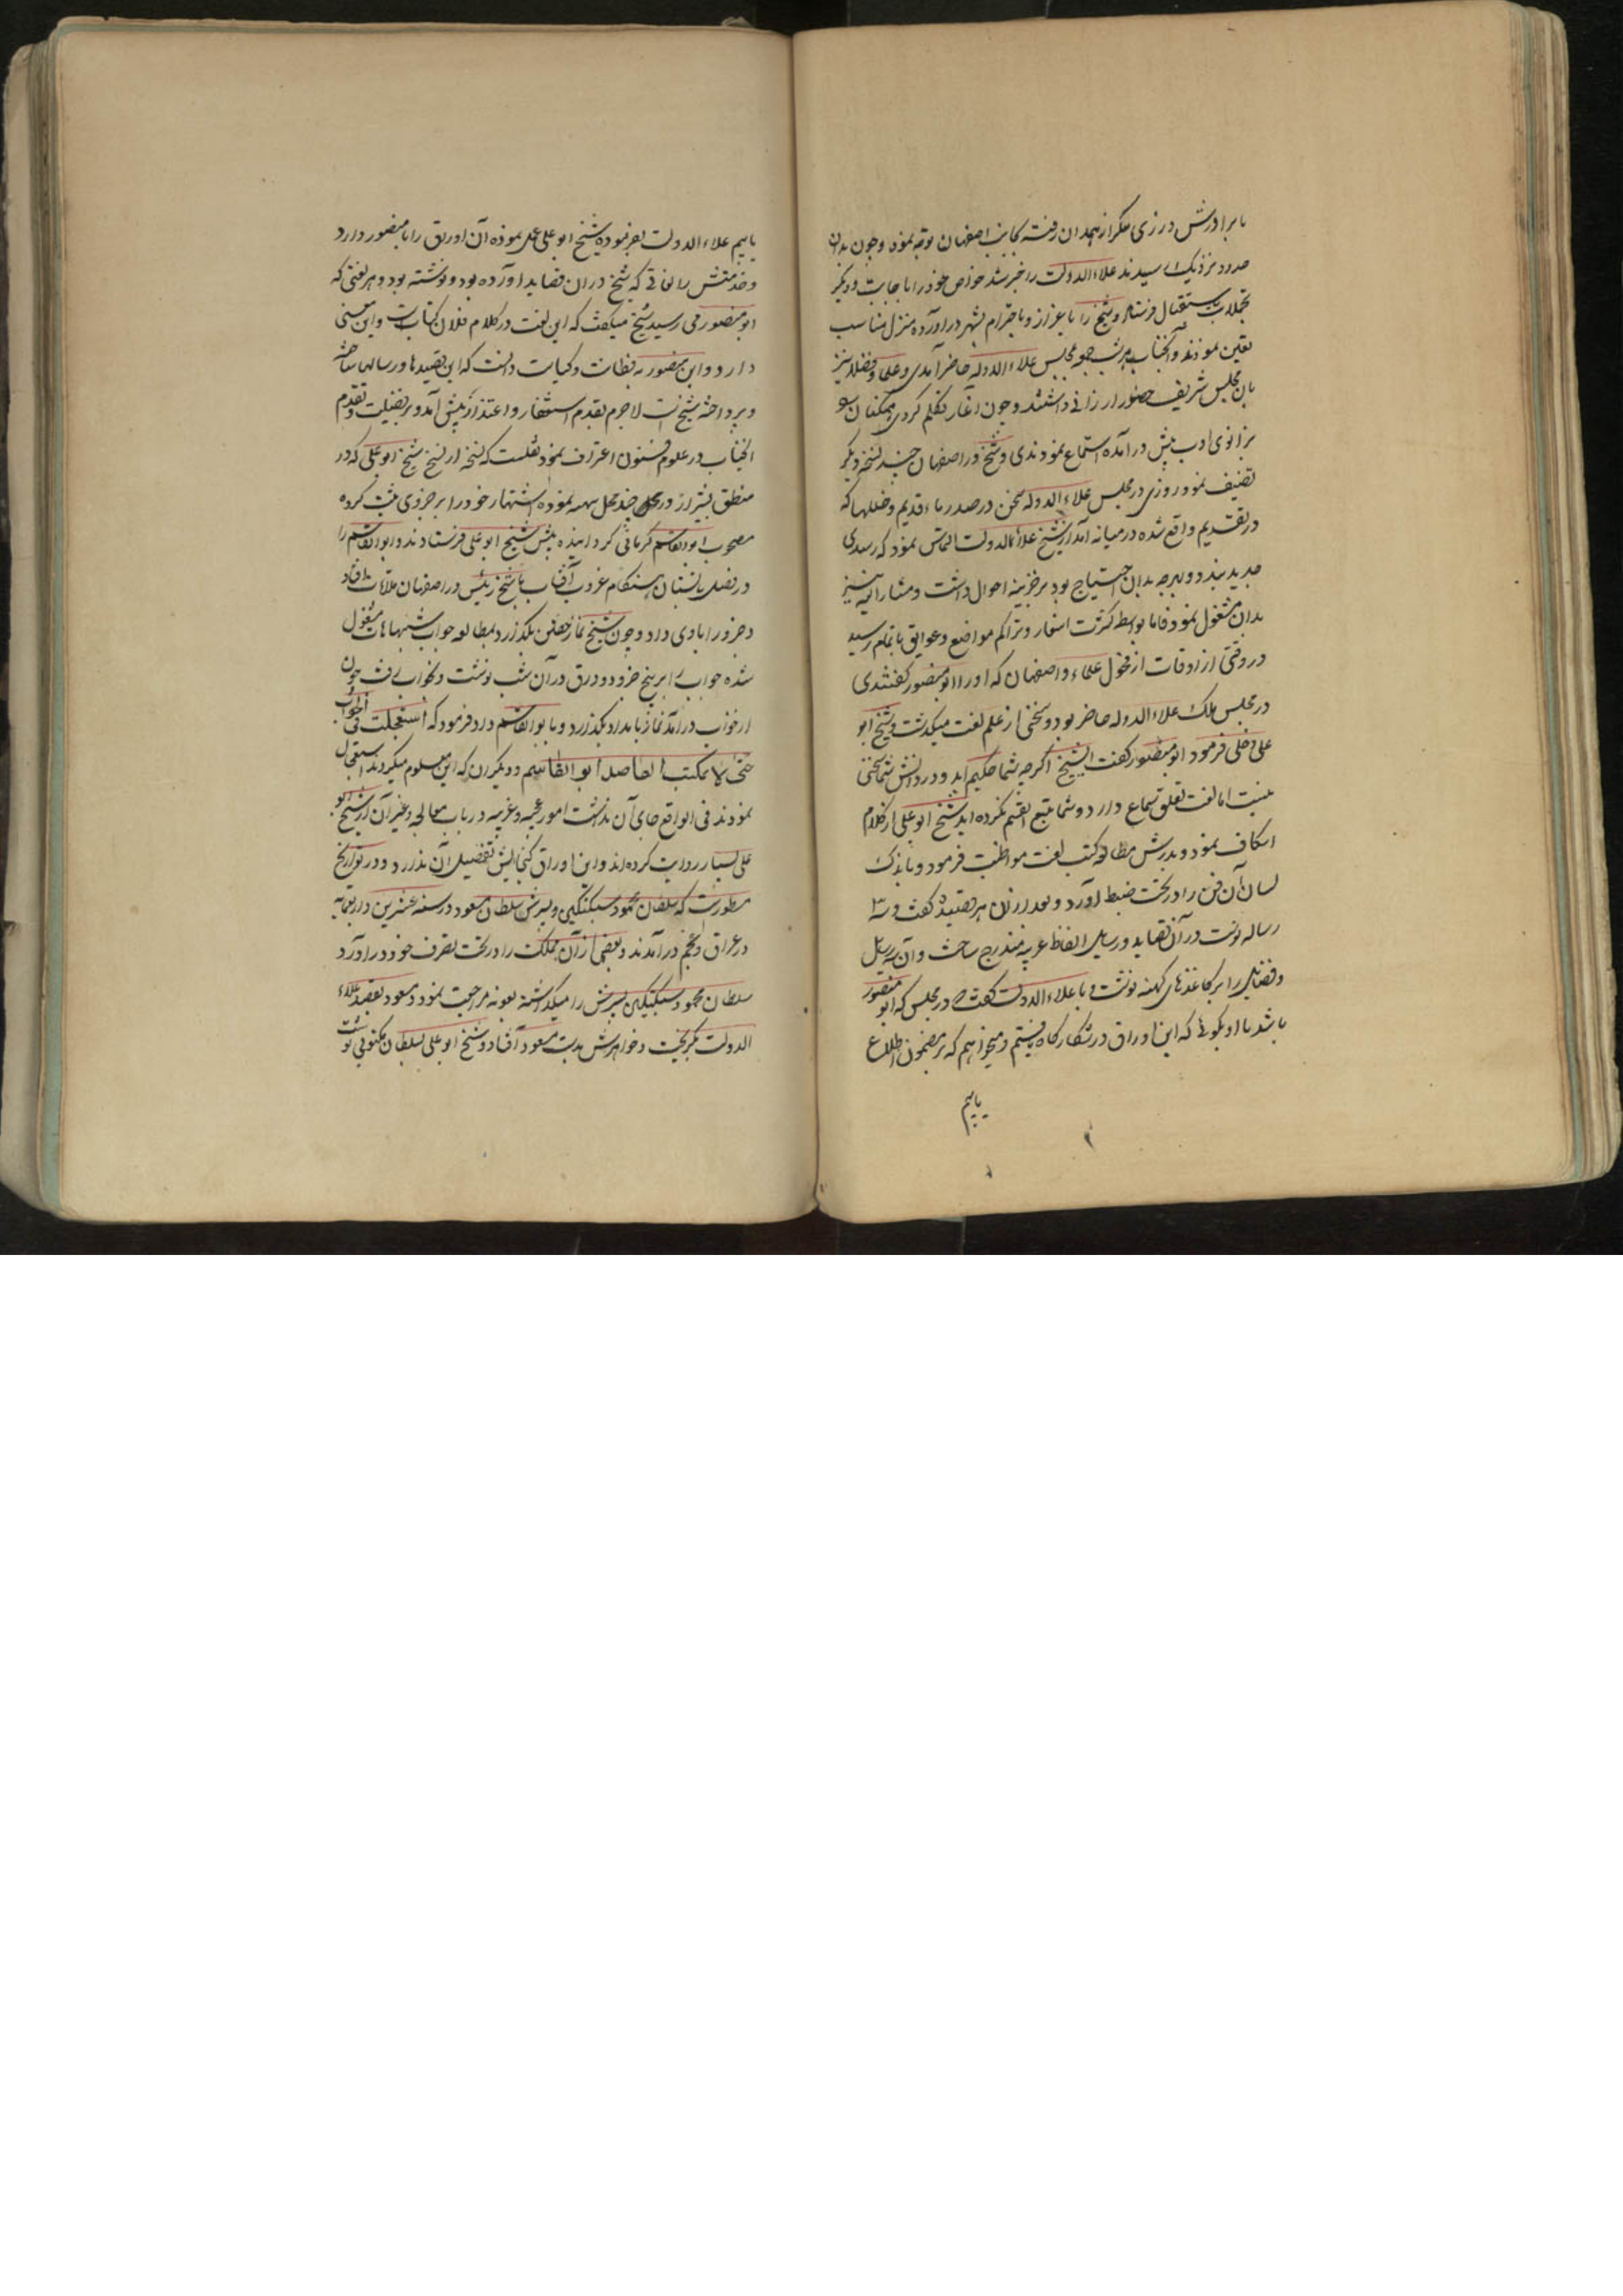 با برادرش در زی متنکر از همدان رفته بجانب اصفهان توجه نموده و چون بدان
حدود نزدیک رسیدند علاء الدولت را خبر شد خواص خود را با جابت و دیگر
تجملات باستقبال فرستاد و شیخ را با عزاز و با حترام بشهر در آورده منزل مناسب
تعین نمودند و آنجناب هر شب جمعه بمجلس علاء الدوله حاضر آمدی و علما و فضلا نیز
بان مجلس شریف حضور ارزانی داشتند و چون آغاز تکلم کردی همکنان
بزانوی ادب پیش در آمده استماع نمودندی و شیخ در اصفهان چند نسخه دیگر
تصنیف نمود روزی در مجلس علاء الدوله سخن در صدر باء قدیم و خللها که
در تقدیم واقع شده در میانه آمد از شیخ علاء الدولت التماس نمود که رصدی
جدید ببندد و بهرچه بدان احتیاج بود بر خزینه احوال داشت و مشار الیه نیز
بدان مشغول نمود فاما بواسطه کثرت اسفار و تراکم مواضع و عوایق باتمام نرسید
در وقتی از اوقات از فحول علماء و اصفهان که او را ابو منصور گفتندی
در مجلس ملک علاء الدوله حاضر بود و سخنی از علم لغت میکدشت و شیخ ابو
علی دخلی فرمود ابو منصور گفت ایشیخ اگرچه شما حکیم اید و در دانش شما سخنی
نیست اما لغت تعلق بسماع دارد و شما تتبع القسم نکرده اید شیخ ابو علی از کلام
استکاف نمود و بدرش مطالعه کتب لغت مواظبت فرمود و باندک
لسان آن فن را در تحت ضبط آورد و بعد از ان هر قصیده گفت و سه
رساله نوشت در آن قصاید و رسایل الفاظ غریبه مندرج ساخت و آن رسایل
و قصاید را بر کاغذهای کهنه نوشت و با علاء الدولت گفت در مجلس که ابو منصور
باشد با او بگوئی که این اوراق در شکارگاه یافتیم و میخواهیم که بر مضمون اطلاع
یابیم
یابیم علاء الدولت بفرموده شیخ ابو علی عمل نموده آن اوراق را با منصور دارد
و خدمتش را لغاتی که شیخ در ان قصاید آورده بود و نوشته بود و هر لغتی که
ابو منصور می رسید شیخ میگفت که این لغت در کلام فلان کتابست و این معنی
دارد و ابن منصور به فطانت و کیاست دانست که این قصیدها و رسالها ساخته
و پرداخته شیخ است لاجرم بقدم استغفار و اعتذار پیش آمد و بر فضیلت و تقدم
آنجناب در علوم و فنون اعتراف نمود نقلست که نسخه از نسخ شیخ ابو علی که در
منطق بشیراز در محل چند محل شبهه نموده اشتهار خود را بر جزوی ثبت کرده
مصحوب ابو القاسم کرمانی گردانیده پیش شیخ ابو علی فرستادند و ابو القاسم را
در فصل تابستان هنگام غروب آفتاب با شیخ رئیس در اصفهان ملاقات افتاد
و جزو را باوی داد و چون شیخ نماز خفتن بگذرد بمطالعه جواب شبهها مشغول
شده جواب را بر پنج جزو ده ورق در آن شب نوشت و بخواب رفت چون
از خواب در آمد نماز بامداد بگذارد و با بو القاسم داد فرمود که استعجلت فی الجواب
حتی لا یمکث الفاصل ابو القاسم و دیگران که این معلوم میکردند استعجال
نمودند فی الواقع جای آن نداشت امور عجیبه و غریبه در باب معالجه و غیر آن از شیخ ابو
علی بسیار روایت کرده اند و این اوراق گنجایش تفصیل آن ندارد و در تواریخ
مسطورست که سلطان محمود سبکتکین و پسرش سلطان مسعود در سنه عشرین و اربعمایه
در عراق و عجم در آمدند و بعضی از آن مملکت را در تحت تصرف خود در آورد
سلطان محمود سبکتکین پسرش را میگذاشته بغزنه مراجعت نمود و مسعود بقصد علاء
الدولت بگریخت و خواهرش بدست مسعود افتاد و شیخ ابو علی بسلطان مکتوبی نوشت